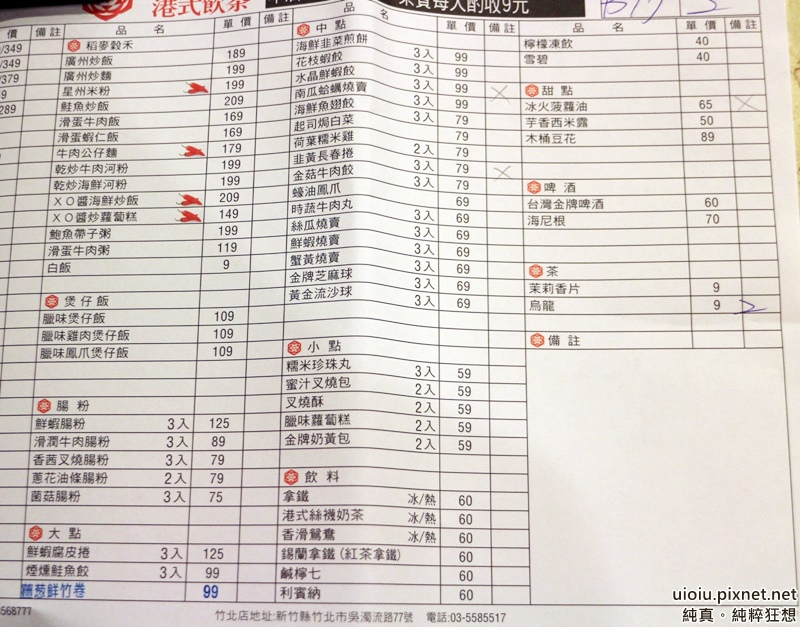 港式飲茶
茶資每人酌收9元
價 備註 品名 單價 備註
/349
/349
/379
9
289
稻麥穀禾
廣州炒飯 189
廣州炒麵 199
星州米粉 199
鮭魚炒飯 209
滑蛋牛肉飯 169
滑蛋蝦仁飯 169
牛肉公仔麵 179
乾炒牛肉河粉 199
乾炒海鮮河粉 199
XO醬海鮮炒飯 209
XO醬炒蘿蔔糕 149
鮑魚帶子粥 199
滑蛋牛肉粥 119
白飯 9
煲仔飯
臘味煲仔飯 109
臘味雞肉煲仔飯 109
臘味鳳爪煲仔飯 109
腸粉
鮮蝦腸粉 3入 125
滑潤牛肉腸粉 3入 89
香茜叉燒腸粉 3入 79
蔥花油條腸粉 2入 79
菌菇腸粉 3入 75
大點
鮮蝦腐皮捲 3入 125
煙燻鮭魚餃 3入 99
鮮竹卷 99
3568777
品名 單價 備註
中點
海鮮韭菜煎餅 3入 99
花枝蝦餃 3入 99
水晶鮮蝦餃 3入 99
南瓜蛤蠣燒賣 3入 99
海鮮魚翅餃 3入 79
起司焗白菜 79
荷葉糯米雞 2入 79
韭黃長春捲 3入 79
金菇牛肉餃 3入 79
蠔油鳳爪 69
時蔬牛肉丸 3入 69
絲瓜燒賣 3入 69
鮮蝦燒賣 3入 69
蟹黃燒賣 3入 69
金牌芝麻球 3入 69
黃金流沙球 3入 69
小點
糯米珍珠丸 3入 59
蜜汁叉燒包 2入 59
叉燒酥 2入 59
臘味蘿蔔糕 2入 59
金牌奶黃包 2入 59
飲料
拿鐵 冰/熱 60
港式絲襪奶茶 冰/熱 60
香滑鴛鴦 冰/熱 60
錫蘭拿鐵(紅茶拿鐵) 60
鹹檸七 60
利賓納 60
品名 單價 備註
檸檬凍飲 40
雪碧 40
甜點
冰火菠蘿油 65
芋香西米露 50
木桶豆花 89
啤酒
台灣金牌啤酒 60
海尼根 70
茶
茉莉香片 9
烏龍 9 2
備註
竹北店地址:新竹縣竹北市吳濁流路77號 電話:03-5585517
uioiu.pixnet.net
純真。純粹狂想